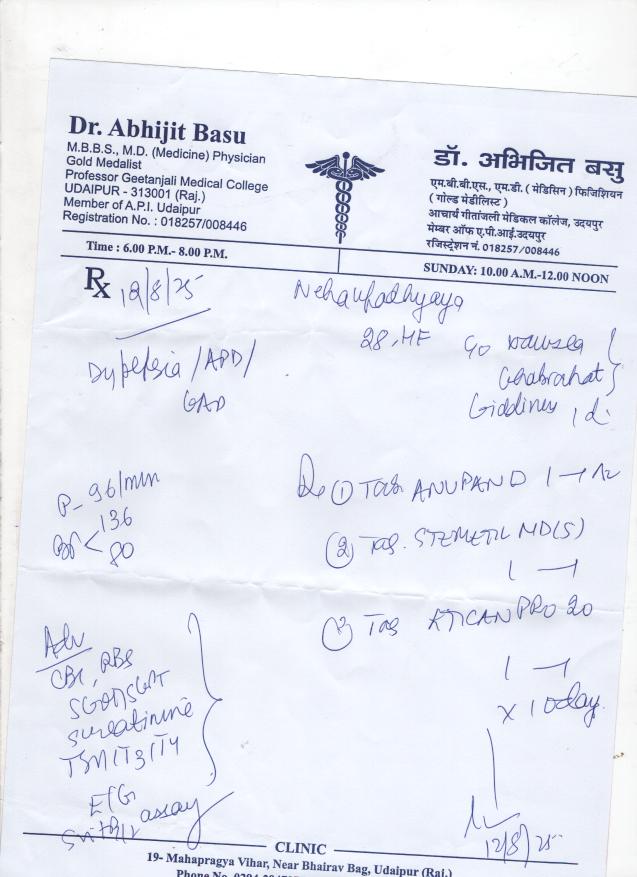 Dr. Abhijit Basu
M.B.B.S., M.D. (Medicine) Physician
Gold Medalist
Professor Geetanjali Medical College
UDAIPUR - 313001 (Raj.)
Member of A.P.I. Udaipur
Registration No. : 018257/008446
डॉ. अभिजित बसु
एम.बी.बी.एस., एम.डी. ( मेडिसिन ) फिजिशियन
( गोल्ड मेडीलिस्ट )
आचार्य गीतांजली मेडिकल कॉलेज, उदयपुर
मेम्बर ऑफ ए.पी.आई.उदयपुर
रजिस्ट्रेशन नं. 018257/008446
Time : 6.00 P.M.- 8.00 P.M.
SUNDAY: 10.00 A.M.-12.00 NOON
Rx 12/8/25
Neha Upadhyaya
28, HF
Dyspepsia /APD/
GAD
c/o nausea
Ghabrahat
Giddiness 1d
P- 96/min
BP < 136
80
Rx ① Tab ANUPAN D 1
② Tab. STEMETIL MD(5)
1 — 1
③ Tab PRO 20
1 — 1
x 10 day
Adv
CBC, RBS
SGOT/SGPT
S creatinine
TSH/T3/T4
ECG
assay
12/8/25
CLINIC
19- Mahapragya Vihar, Near Bhairav Bag, Udaipur (Raj.)